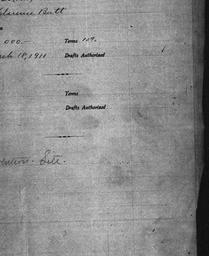 Clarence Butt
000.— Terms
ch 18, 1911 Drafts Authorized
Terms
Drafts Authorized
Site.